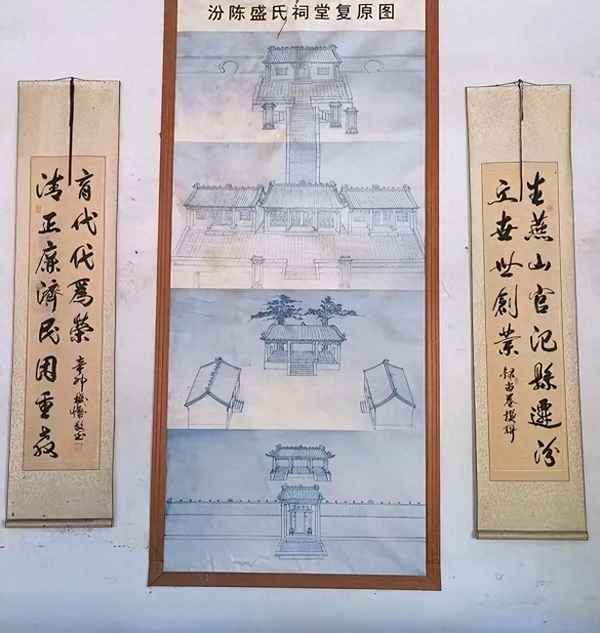 汾陈盛氏祠堂复原图
生燕山官汜縣遷汾
文世世創業
清正廉濟民困重教
育代代爲榮
辛卯